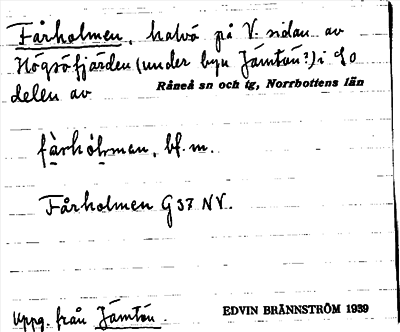 Fårholmen, halvö på V. sidan av
Högsöfjärden (under byn Jämtön?) i SO
delen av Råneå sn och tg, Norrbottens län
fàrhólman, bf. m.
Fårholmen G37 NV.
Uppg. från Jämtön.
EDVIN BRÄNNSTRÖM 1939